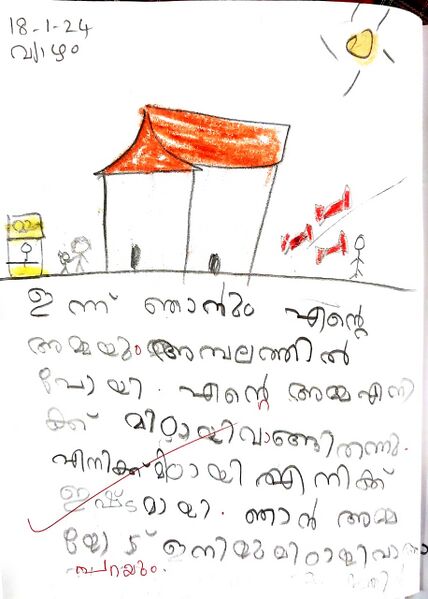 18-1-24
വ്യാഴം
ഇന്ന് ഞാനും എന്റെ
അമ്മയും അമ്പലത്തിൽ
പോയി. എന്റെ അമ്മ എനി
ക്ക് മിഠായി വാങ്ങി തന്നു.
എനിക്ക് മിഠായി എനിക്ക്
ഇഷ്ട മായി. ഞാൻ അമ്മ
യോട് ഇനിയും മിഠായി
പറയും.